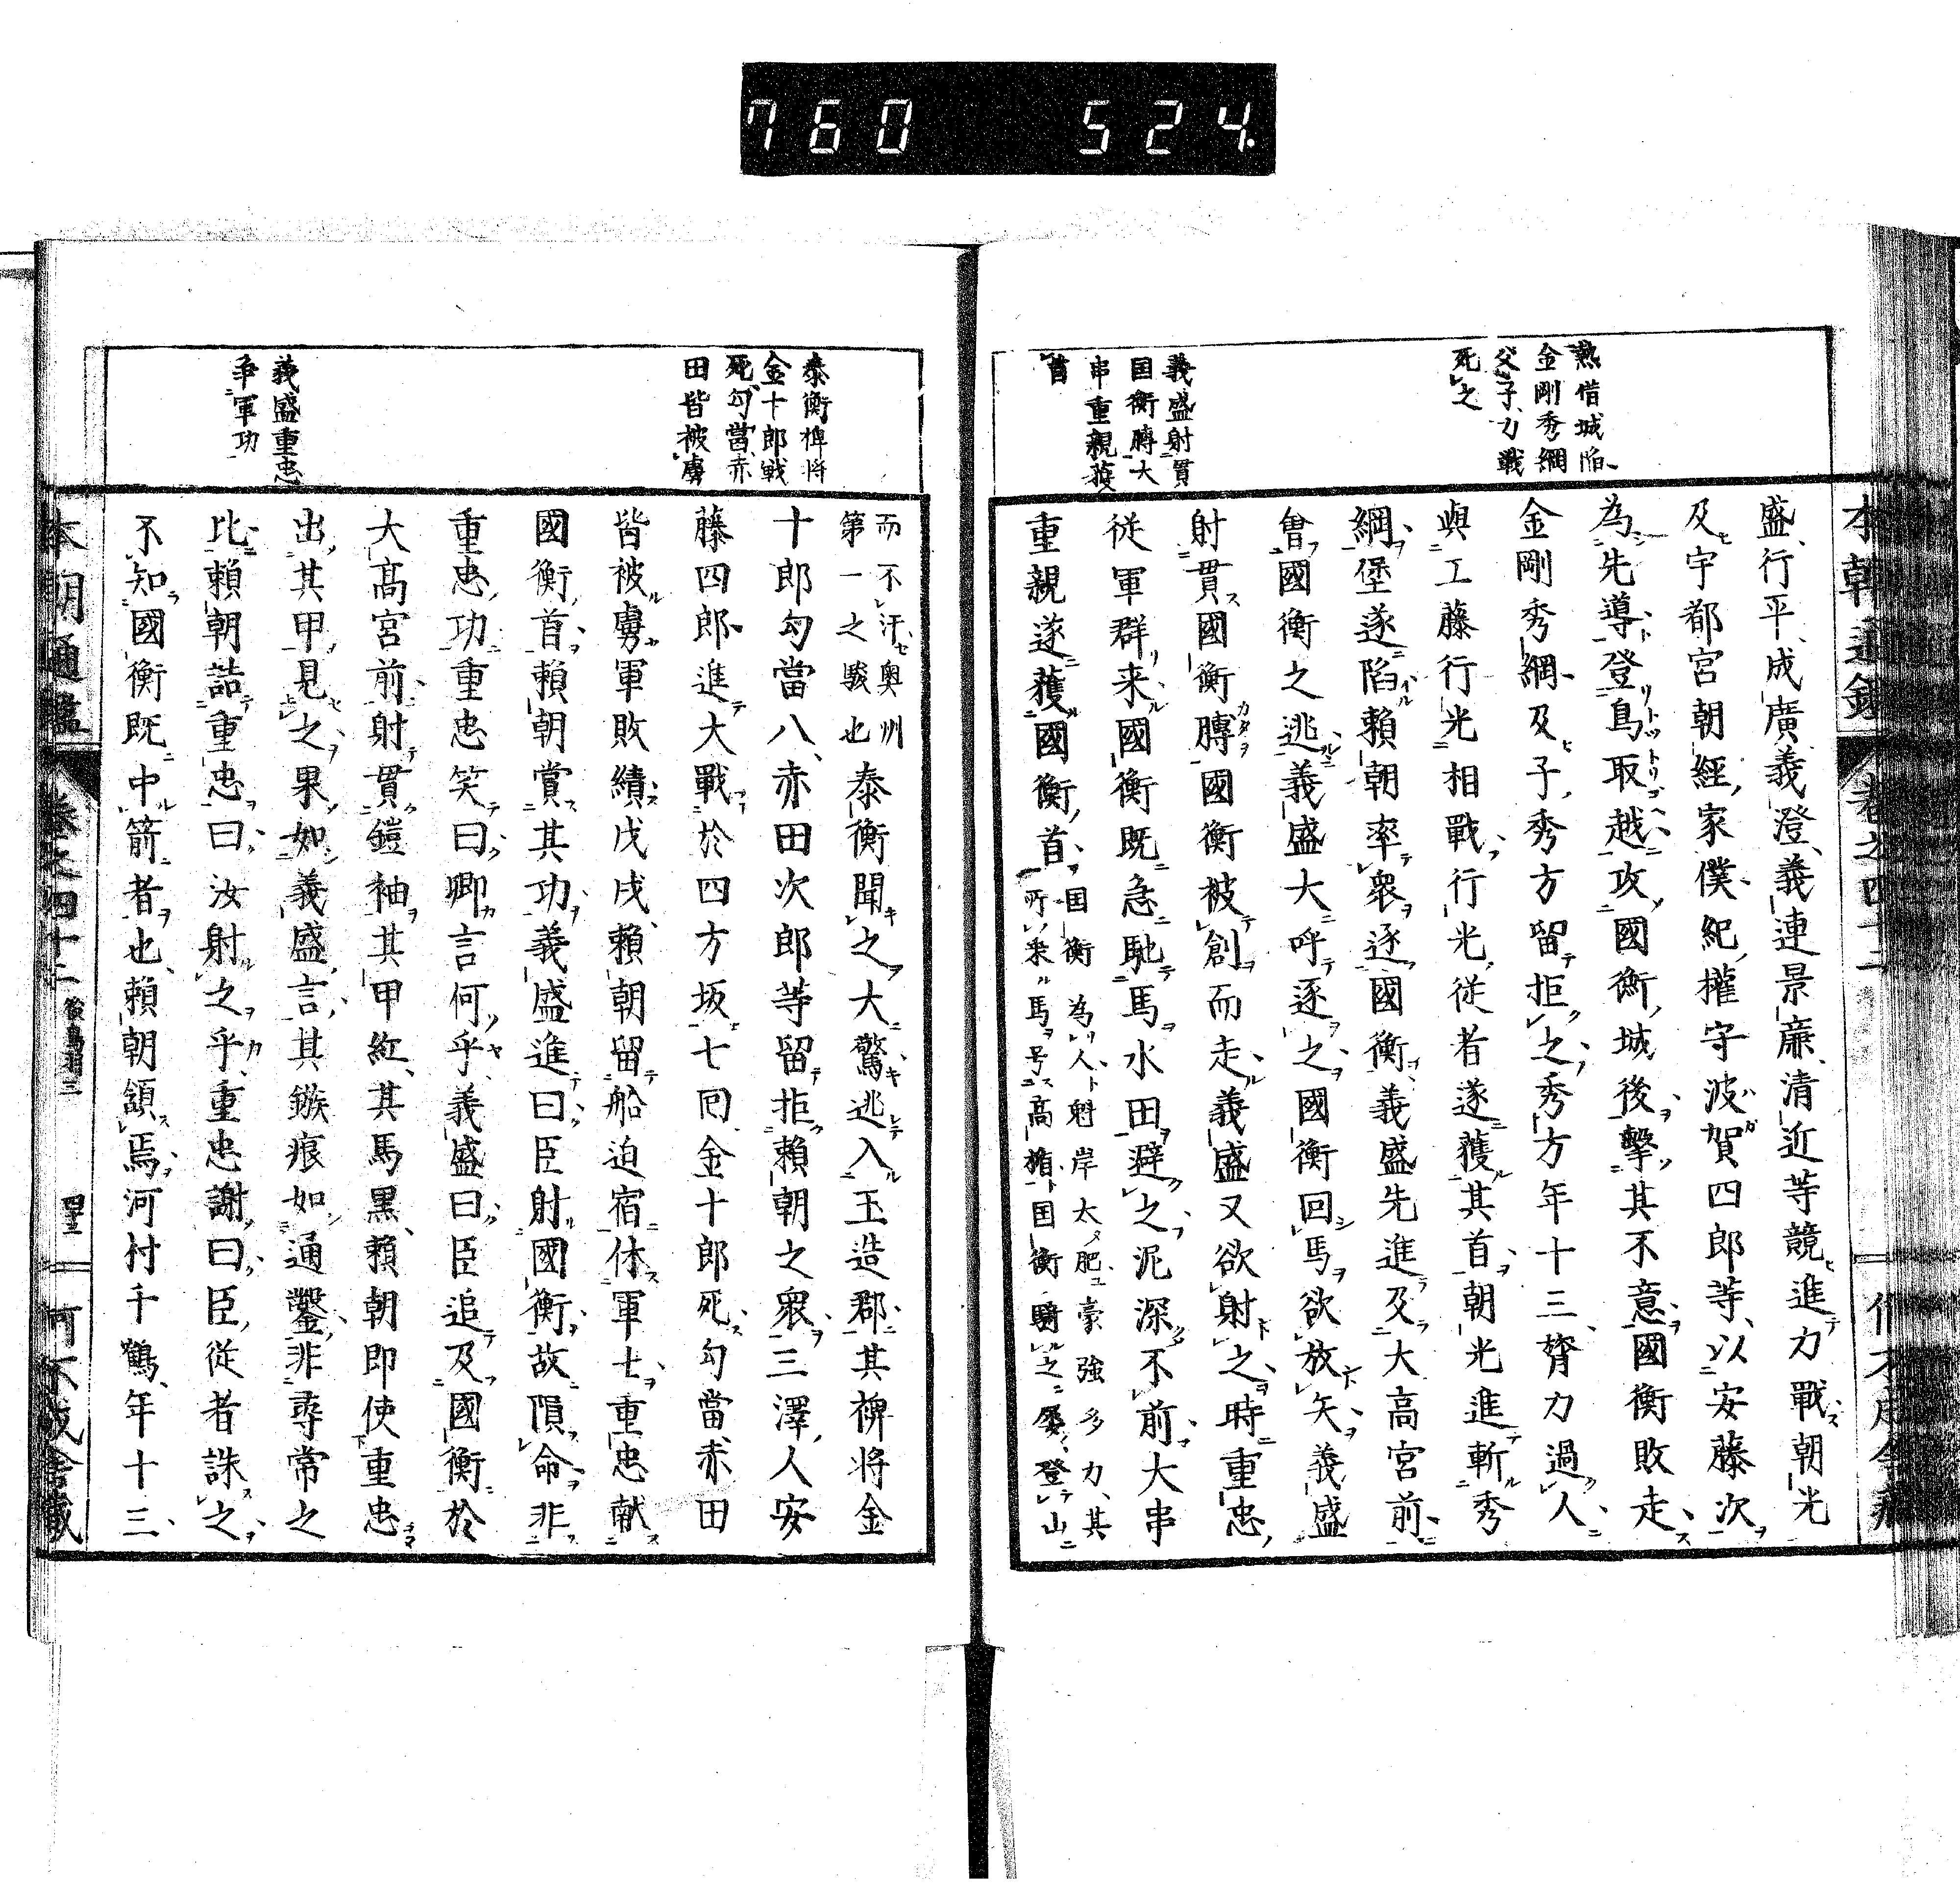 760 524.
熱借城陥
金剛秀綱
父子力戦
死之
義盛射貫
国衡膊大
串重親獲
首
盛行平成廣義澄義連景廉清近等競進力戰朝光
及宇都宮朝經家僕紀權守波賀四郎等以安藤次
為先導登鳥取越攻國衡城後撃其不意國衡敗走
金剛秀綱及子秀方留拒之秀方年十三膂力過人
與工藤行光相戰行光従者遂獲其首朝光進斬秀
綱堡遂陥賴朝率衆逐國衡義盛先進及大高宮前
會國衡之逃義盛大呼逐之國衡回馬欲放矢義盛
射貫國衡膊國衡被創而走義盛又欲射之時重忠
従軍群来國衡既急馳馬水田避之泥深不前大串
重親遂獲國衡首
国衡為人魁岸太肥豪強多力其
所乗馬号高楯国衡騎之屡登山
泰衡裨将
金十郎戦
死勾當赤
田皆被虜
義盛重忠
争軍功
而不汗奥州
第一之駿也
泰衡聞之大驚逃入玉造郡其裨将金
十郎勾當八赤田次郎等留拒賴朝之衆三澤人安
藤四郎進大戰於四方坂七回金十郎死勾當赤田
皆被虜軍敗績戊戌賴朝留船迫宿休軍士重忠献
國衡首賴朝賞其功義盛進曰臣射國衡故隕命非
重忠功重忠笑曰卿言何乎義盛曰臣追及國衡於
大高宮前射貫鎧袖其甲紅其馬黒賴朝即使重忠
出其甲見之果如義盛言其鏃痕如通鑿非尋常之
比賴朝詰重忠曰汝射之乎重忠謝曰臣従者誅之
不知國衡既中箭者也賴朝頷焉河村千鶴年十三
本朝通鑑 巻之四十二 後鳥羽三